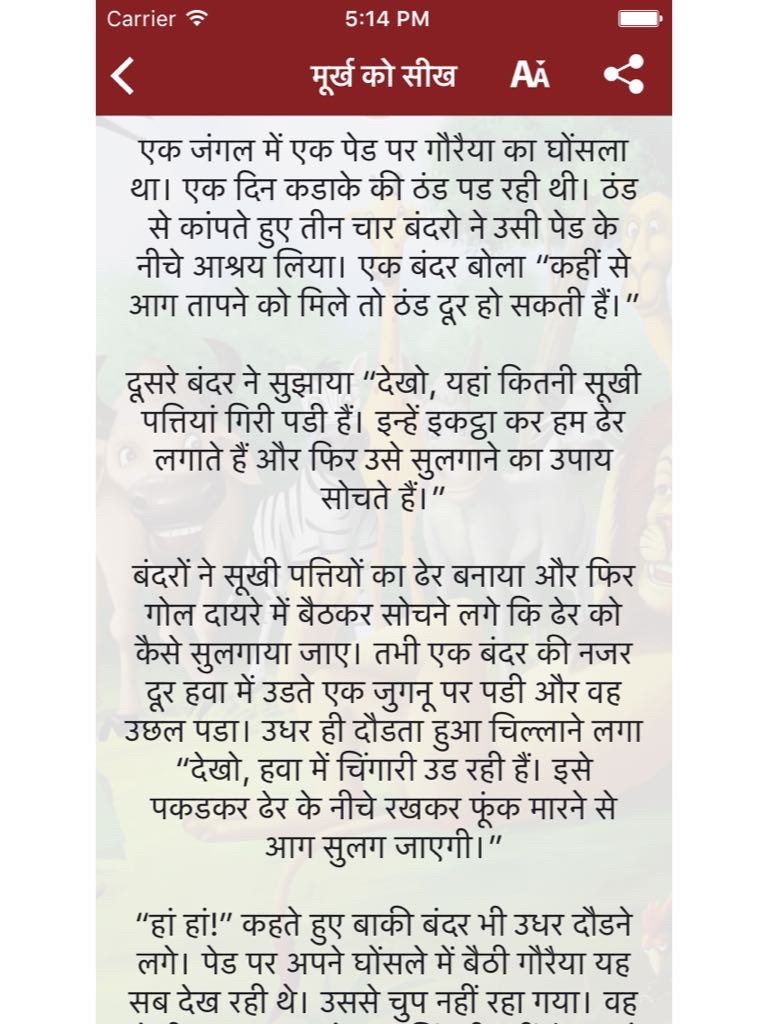 Carrier 5:14 PM
मूर्ख को सीख AA
एक जंगल में एक पेड पर गौरैया का घोंसला
था। एक दिन कडाके की ठंड पड रही थी। ठंड
से कांपते हुए तीन चार बंदरो ने उसी पेड के
नीचे आश्रय लिया। एक बंदर बोला “कहीं से
आग तापने को मिले तो ठंड दूर हो सकती हैं।”
दूसरे बंदर ने सुझाया “देखो, यहां कितनी सूखी
पत्तियां गिरी पडी हैं। इन्हें इकट्ठा कर हम ढेर
लगाते हैं और फिर उसे सुलगाने का उपाय
सोचते हैं।”
बंदरों ने सूखी पत्तियों का ढेर बनाया और फिर
गोल दायरे में बैठकर सोचने लगे कि ढेर को
कैसे सुलगाया जाए। तभी एक बंदर की नजर
दूर हवा में उडते एक जुगनू पर पडी और वह
उछल पडा। उधर ही दौडता हुआ चिल्लाने लगा
“देखो, हवा में चिंगारी उड रही हैं। इसे
पकडकर ढेर के नीचे रखकर फूंक मारने से
आग सुलग जाएगी।”
“हां हां!” कहते हुए बाकी बंदर भी उधर दौडने
लगे। पेड पर अपने घोंसले में बैठी गौरैया यह
सब देख रही थे। उससे चुप नहीं रहा गया। वह